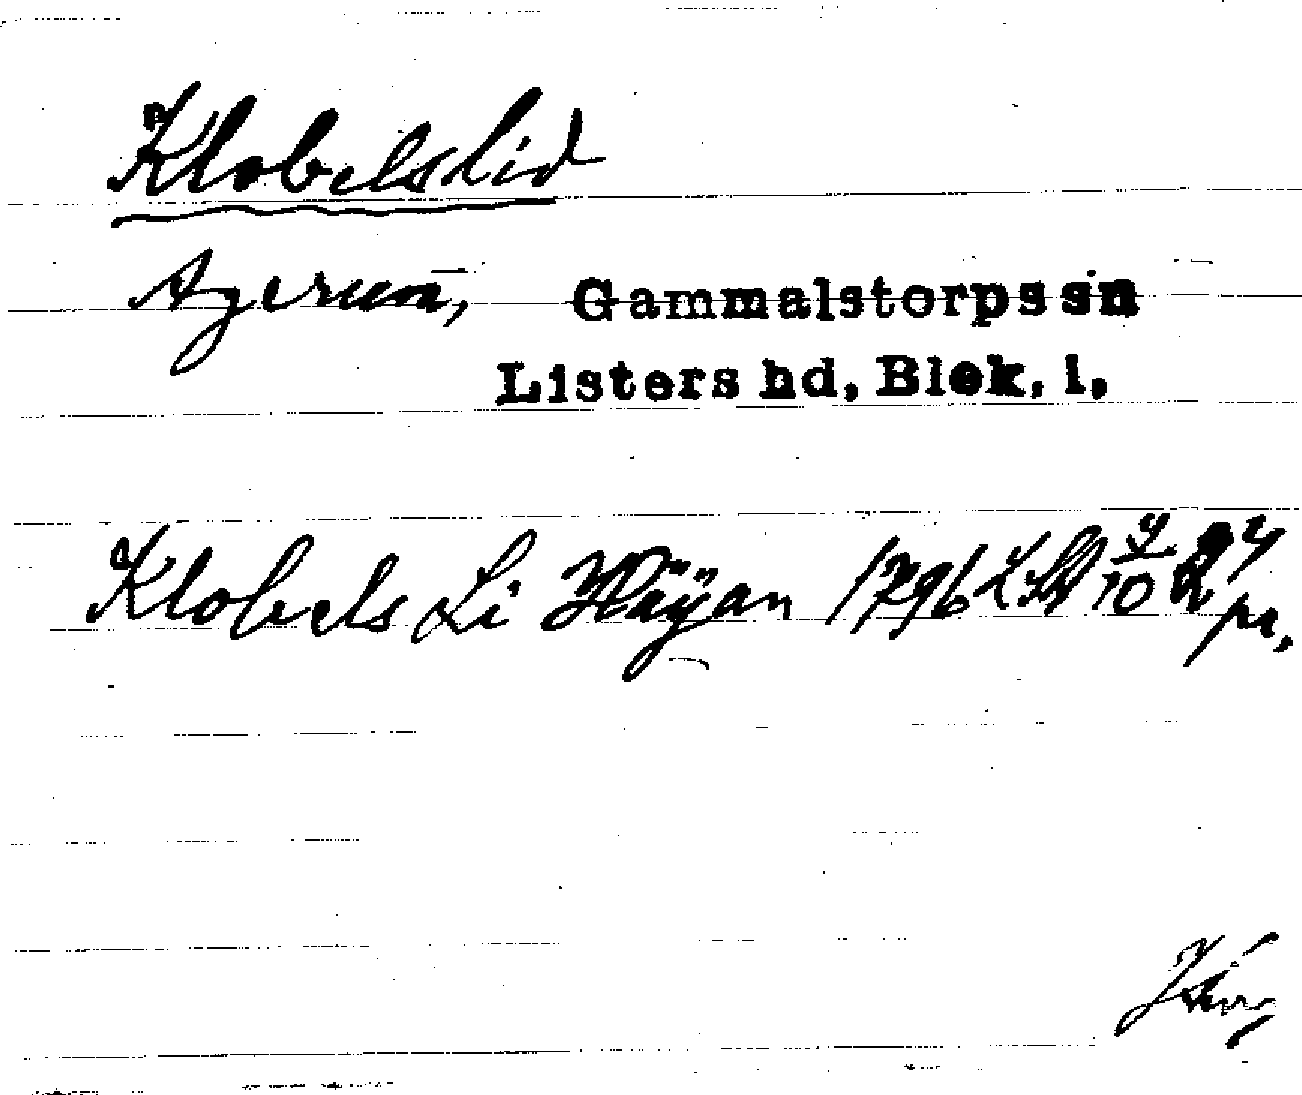 Klobelslid
Agerum, Gammalstorps sn
Listers hd, Blek. l.
Klobels Li Häÿan 1796 LSA 4/10 24
pr.